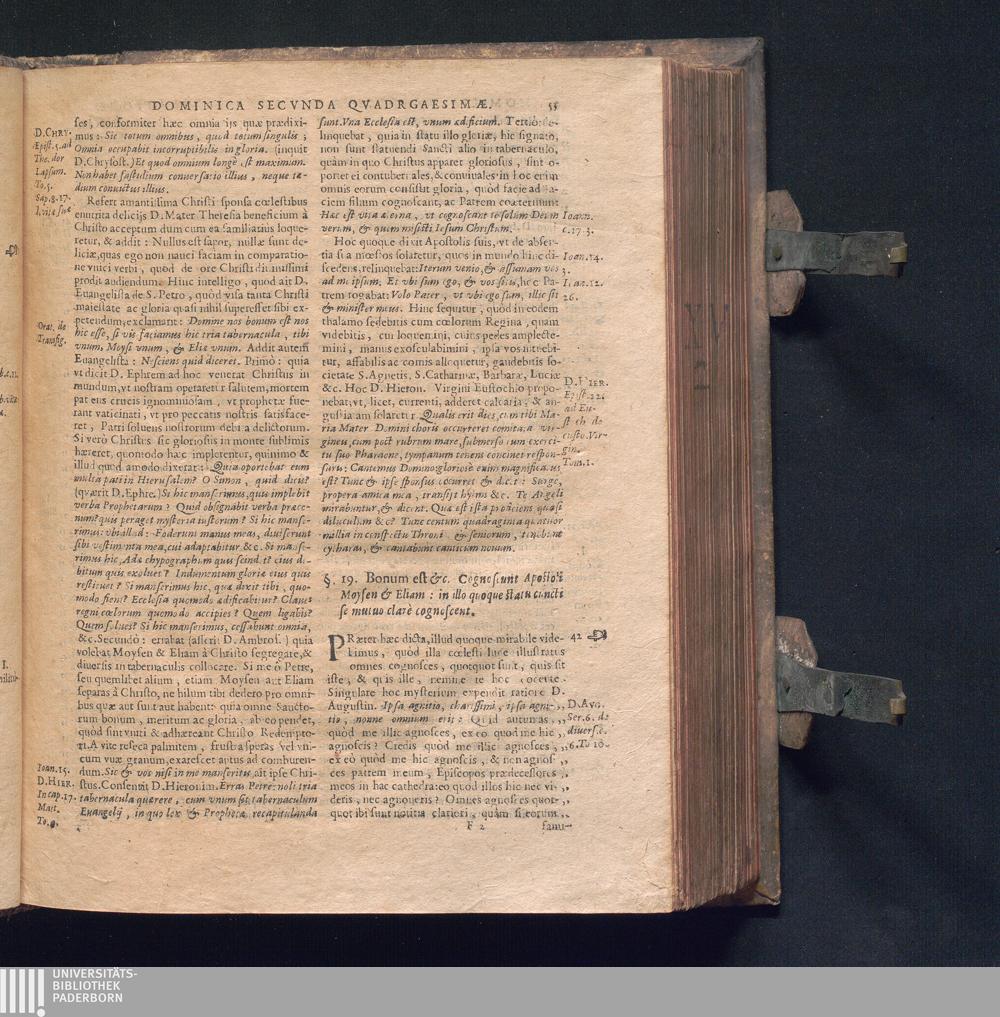 DOMINICA SECVNDA QVADRGAESIMÆ. 55
ses, conformiter hæc omnia ijs quæ prædixi-
mus: Sic totum omnibus, quod totum singulis;
Omnia occupabit incorruptibilis in gloria. (inquit
D. Chrysost.) Et quod omnium longè est maximum.
Non habet fastidium conuersatio illius, neque tæ-
dium conuictus illius.
Refert amantissima Christi sponsa cœlestibus
enutrita delicijs D. Mater Theresia beneficium à
Christo acceptum dum cum ea familiarius loque-
retur, & addit: Nullus est sapor, nullæ sunt de-
liciæ, quas ego non nauci faciam in comparatio-
ne vnici verbi, quod de ore Christi diuinissimi
prodijt audiendum. Hinc intelligo, quod ait D.
Euangelista de S. Petro, quòd visa tanta Christi
maiestate ac gloria quasi nihil superesset sibi ex-
petendum, exclamant: Domine nos bonum est nos
hic esse, si vis faciamus hic tria tabernacula, tibi
vnum, Moysi vnum, & Eliæ vnum. Addit autem
Euangelista: Nesciens quid diceret. Primò: quia
vt dicit D. Ephrem ad hoc venerat Christus in
mundum, vt nostram operaretur salutem, mortem
patiens crucis ignominiosam, vt prophetæ fue-
rant vaticinati, vt pro peccatis nostris satisface-
ret, Patri soluens nostrorum debita delictorum.
Si verò Christus sic gloriosus in monte sublimis
hæreret, quomodo hæc implerentur, quinimo &
illud quod amodo dixerat: Quia oportebat eum
multa pati in Hierusalem? O Simon, quid dicis?
(quærit D. Ephre.) Si hic manserimus, quis implebit
verba Prophetarum? Quid obsignabit verba præco-
num? quis peraget mysteria iustorum? Si hic manse-
rimus: vbi illud: Foderunt manus meas, diuiserunt
sibi vestimenta mea, cui adaptabitur &c. Si manse-
rimus hic, Adæ chypographum quis scindet? eius de-
bitum quis exoluet? Indumentum gloriæ eius quis
restituet? Si manserimus hic, quæ dixit tibi, quo-
modo fient? Ecclesia quomodo ædificabitur? Claues
regni cœlorum quomodo accipies? Quem ligabis?
Quem solues? Si hic manserimus, cessabunt omnia,
&c. Secundò: errabat (asserit D. Ambros.) quia
volebat Moysen & Eliam à Christo segregare, &
diuersis in tabernaculis collocare. Si me ô Petre,
seu quemlibet alium, etiam Moysen aut Eliam
separas à Christo, ne hilum tibi dedero pro omni-
bus quæ aut sunt aut habent: quia omne Sancto-
rum bonum, meritum ac gloria, ab eo pendet,
quòd sint vniti & adhæreant Christo Redempto-
ri. A vite reseca palmitem, frustra speras vel vni-
cum vuæ granum, exarescet aptus ad comburen-
dum. Sic & vos nisi in me manseritis, ait ipse Chri-
stus. Consentit D. Hieronim. Erras Petre: noli tria
tabernacula quærere, cum vnum sit tabernaculum
Euangelij, in quo lex & Prophetæ recapitulanda
D. CHRY.
Epist. 5. ad
The. dor
Lapsum.
To. 5.
Sap. 8. 17.
Orat. de
Transfig.
Ioan. 15.
D. HIER.
In cap. 17.
Matt.
To. 9.
sunt. Vna Ecclesia est, vnum ædificium. Tertiò: de-
linquebat, quia in statu illo gloriæ, hic signato,
non sunt statuendi Sancti alio in tabernaculo,
quàm in quo Christus apparet gloriosus, sint o-
portet ei contubernales, & conuiuales in hoc enim
omnis eorum consistit gloria, quòd facie ad fa-
ciem filium cognoscant, ac Patrem coæternum:
Hæc est vita æterna, vt cognoscant te solum Deum
verum, & quem misisti Iesum Christum.
Hoc quoque dixit Apostolis suis, vt de absen-
tia sua mœstos solaretur, quos in mundo hinc di-
scedens, relinquebat: Iterum venio, & assumam vos
ad me ipsum, Et vbi sum ego, & vos sitis, hæc Pa-
trem rogabat: Volo Pater, vt vbi ego sum, illic sit
& minister meus. Hinc sequitur, quòd in eodem
thalamo sedebitis cum cœlorum Regina, quam
videbitis, cui loquemini, cuius pedes amplecte-
mini, manus exosculabimini, ipsa vos intuebi-
tur, affabilis ac comis alloquetur, gaudebitis so-
cietate S. Agnetis, S. Catharinæ, Barbaræ, Luciæ
&c. Hoc D. Hieron. Virgini Eustochio propo-
nebat, vt, licet, currenti, adderet calcaria, & an-
gustiam solaretur. Qualis erit dies, cum tibi Ma-
ria Mater Domini choris occurreret comitata vir-
gineis, cum post rubrum mare, submerso cum exerci-
tu suo Pharaone, tympanum tenens concinet respon-
sura: Cantemus Domino: gloriosè enim magnificatus
est? Tunc & ipse sponsus occurret & dicet: Surge,
propera amica mea, transijt hyems &c. Te Angeli
mirabuntur, & dicent. Quæ est ista prodiens quasi
diluculum &c? Tunc centum quadraginta quatuor
millia in conspectu Throni & seniorum, tenebunt
cytharas, & cantabunt canticum nouum.
§. 19. Bonum est &c. Cognoscunt Apostoli
Moysen & Eliam: in illo quoque statu cuncti
se mutuo clarè cognoscent.
PRæter hæc dicta, illud quoque mirabile vide-
bimus, quòd illa cœlesti luce illustratus
omnes cognosces, quotquot sunt, quis sit
iste, & quis ille, nemine te hoc docente.
Singulare hoc mysterium expendit ratione D.
Augustin. Ipsa agnitio, charissimi, ipsa agni-
tio, nonne omnium erit? Quid autumas,
quòd me illic agnosces, ex eo quod me hic
agnoscis? Credis quòd me illic agnosces,
ex eò quòd me hic agnoscis, & non agnos-
ces patrem meum, Episcopos prædecessores
meos in hac cathedra: eo quòd illos hic nec vi-
deris, nec agnoueris? Omnes agnosces quot-
quot ibi sunt notitia clariori, quàm si eorum
Ioann.
c. 17. 3.
Ioan. 14.
3.
Ioan. 12.
26.
D. HIER.
Epist. 22.
ad Eu-
stoch. de
custo. Vir-
gin.
Tom. 1.
42
D. AVG.
Ser. 6. de
diuers. c.
6. To 10.
F 2
fanu-
UNIVERSITÄTS-
BIBLIOTHEK
PADERBORN